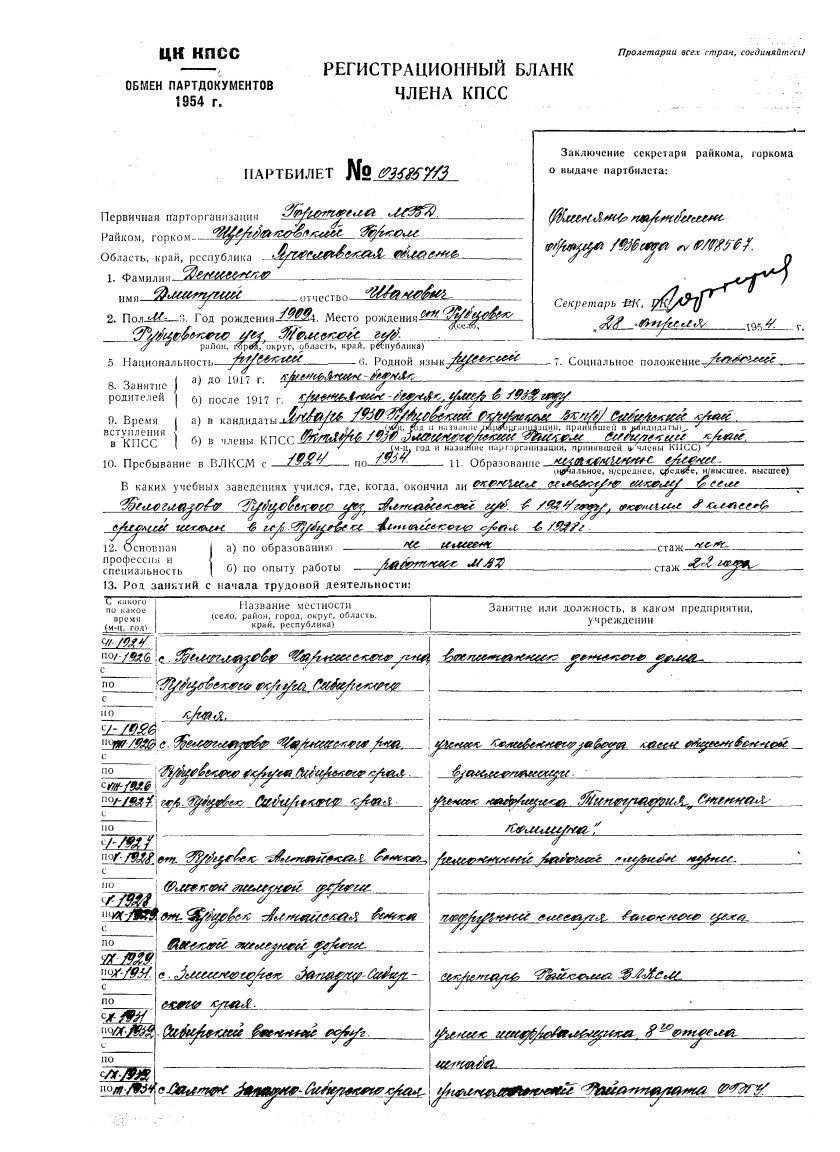 ЦК КПСС
ОБМЕН ПАРТДОКУМЕНТОВ
1954 г.
Пролетарии всех стран, соединяйтесь!
РЕГИСТРАЦИОННЫЙ БЛАНК
ЧЛЕНА КПСС
ПАРТБИЛЕТ № 03585713
Заключение секретаря райкома, горкома
о выдаче партбилета:
Обменять партбилет
образца 1936 года № 0108567.
Секретарь РК, ГК
28 апреля 1954 г.
Первичная парторганизация Горотдела МВД.
Райком, горком Щербаковский Горком
Область, край, республика Ярославская область
1. Фамилия Денисенко
имя Дмитрий отчество Иванович
2. Пол м. 3. Год рождения 1909 4. Место рождения ст. Рубцовск
(село,
Рубцовского уез, Томской губ.
район, город, округ, область, край, республика)
5 Национальность русский 6. Родной язык русский 7. Социальное положение рабочий
8. Занятие родителей а) до 1917 г. крестьянин-бедняк
б) после 1917 г. крестьянин-бедняк, умер в 1932 году
9. Время вступления в КПСС а) в кандидаты Январь 1930 Рубцовский Окружком ВКП(б) Сибирский край.
(м-ц, год и название парторганизации, принявшей в кандидаты)
б) в члены КПСС Октябрь 1930 Змеиногорский Райком Сибирский край.
(м-ц, год и название парторганизации, принявшей в члены КПСС)
10. Пребывание в ВЛКСМ с 1924 по 1934 11. Образование незаконченное средне.
(начальное, н/среднее, среднее, н/высшее, высшее)
В каких учебных заведениях учился, где, когда, окончил ли окончил сельскую школу в сел
Белоглазово Рубцовского уез, Алтайской губ. в 1924 году, окончил 8 классов
средней школы в гор. Рубцовске Алтайского края в 1928 г.
12. Основная профессия и специальность а) по образованию не имеет стаж нет
б) по опыту работы работник МВД стаж 22 года
13. Род занятий с начала трудовой деятельности:
С какого по какое время (м-ц, год)
Название местности
(село, район, город, округ, область, край, республика)
Занятие или должность, в каком предприятии, учреждении
с II-1924
по I-1926 с. Белоглазово Чарышского р-на воспитанник детского дома
с
по Рубцовского округа Сибирского
с
по края.
с I-1926
по VIII-1926 с. Белоглазово Чарышского р-на ученик кожевенного завода кассы общественной
с
по Рубцовского округа Сибирского края. взаимопомощи.
с VIII-1926
по I-1927 гор. Рубцовск Сибирского края. ученик наборщика Типография „Степная
с
по Коммуна“,
с I-1927
по V-1928 ст. Рубцовск Алтайская ветка ремонтный рабочий службы пути.
с
по Омской железной дороги
с V-1928
по IX-1929 ст. Рубцовск Алтайская ветка подручный слесаря вагонного цеха
с
по Омской железной дороги
с IX-1929
по X-1931 с. Змеиногорск Западно-Сибир- секретарь Райкома ВЛКСМ
с
по ского края.
с X-1931
по IX-1932 Сибирский военный округ. ученик шифровальщика 8го отдела
с
по штаба
с IX-1932
по III-1934 с. Салтон Западно-Сибирского края уполномоченный Райаппарата ОГПУ.